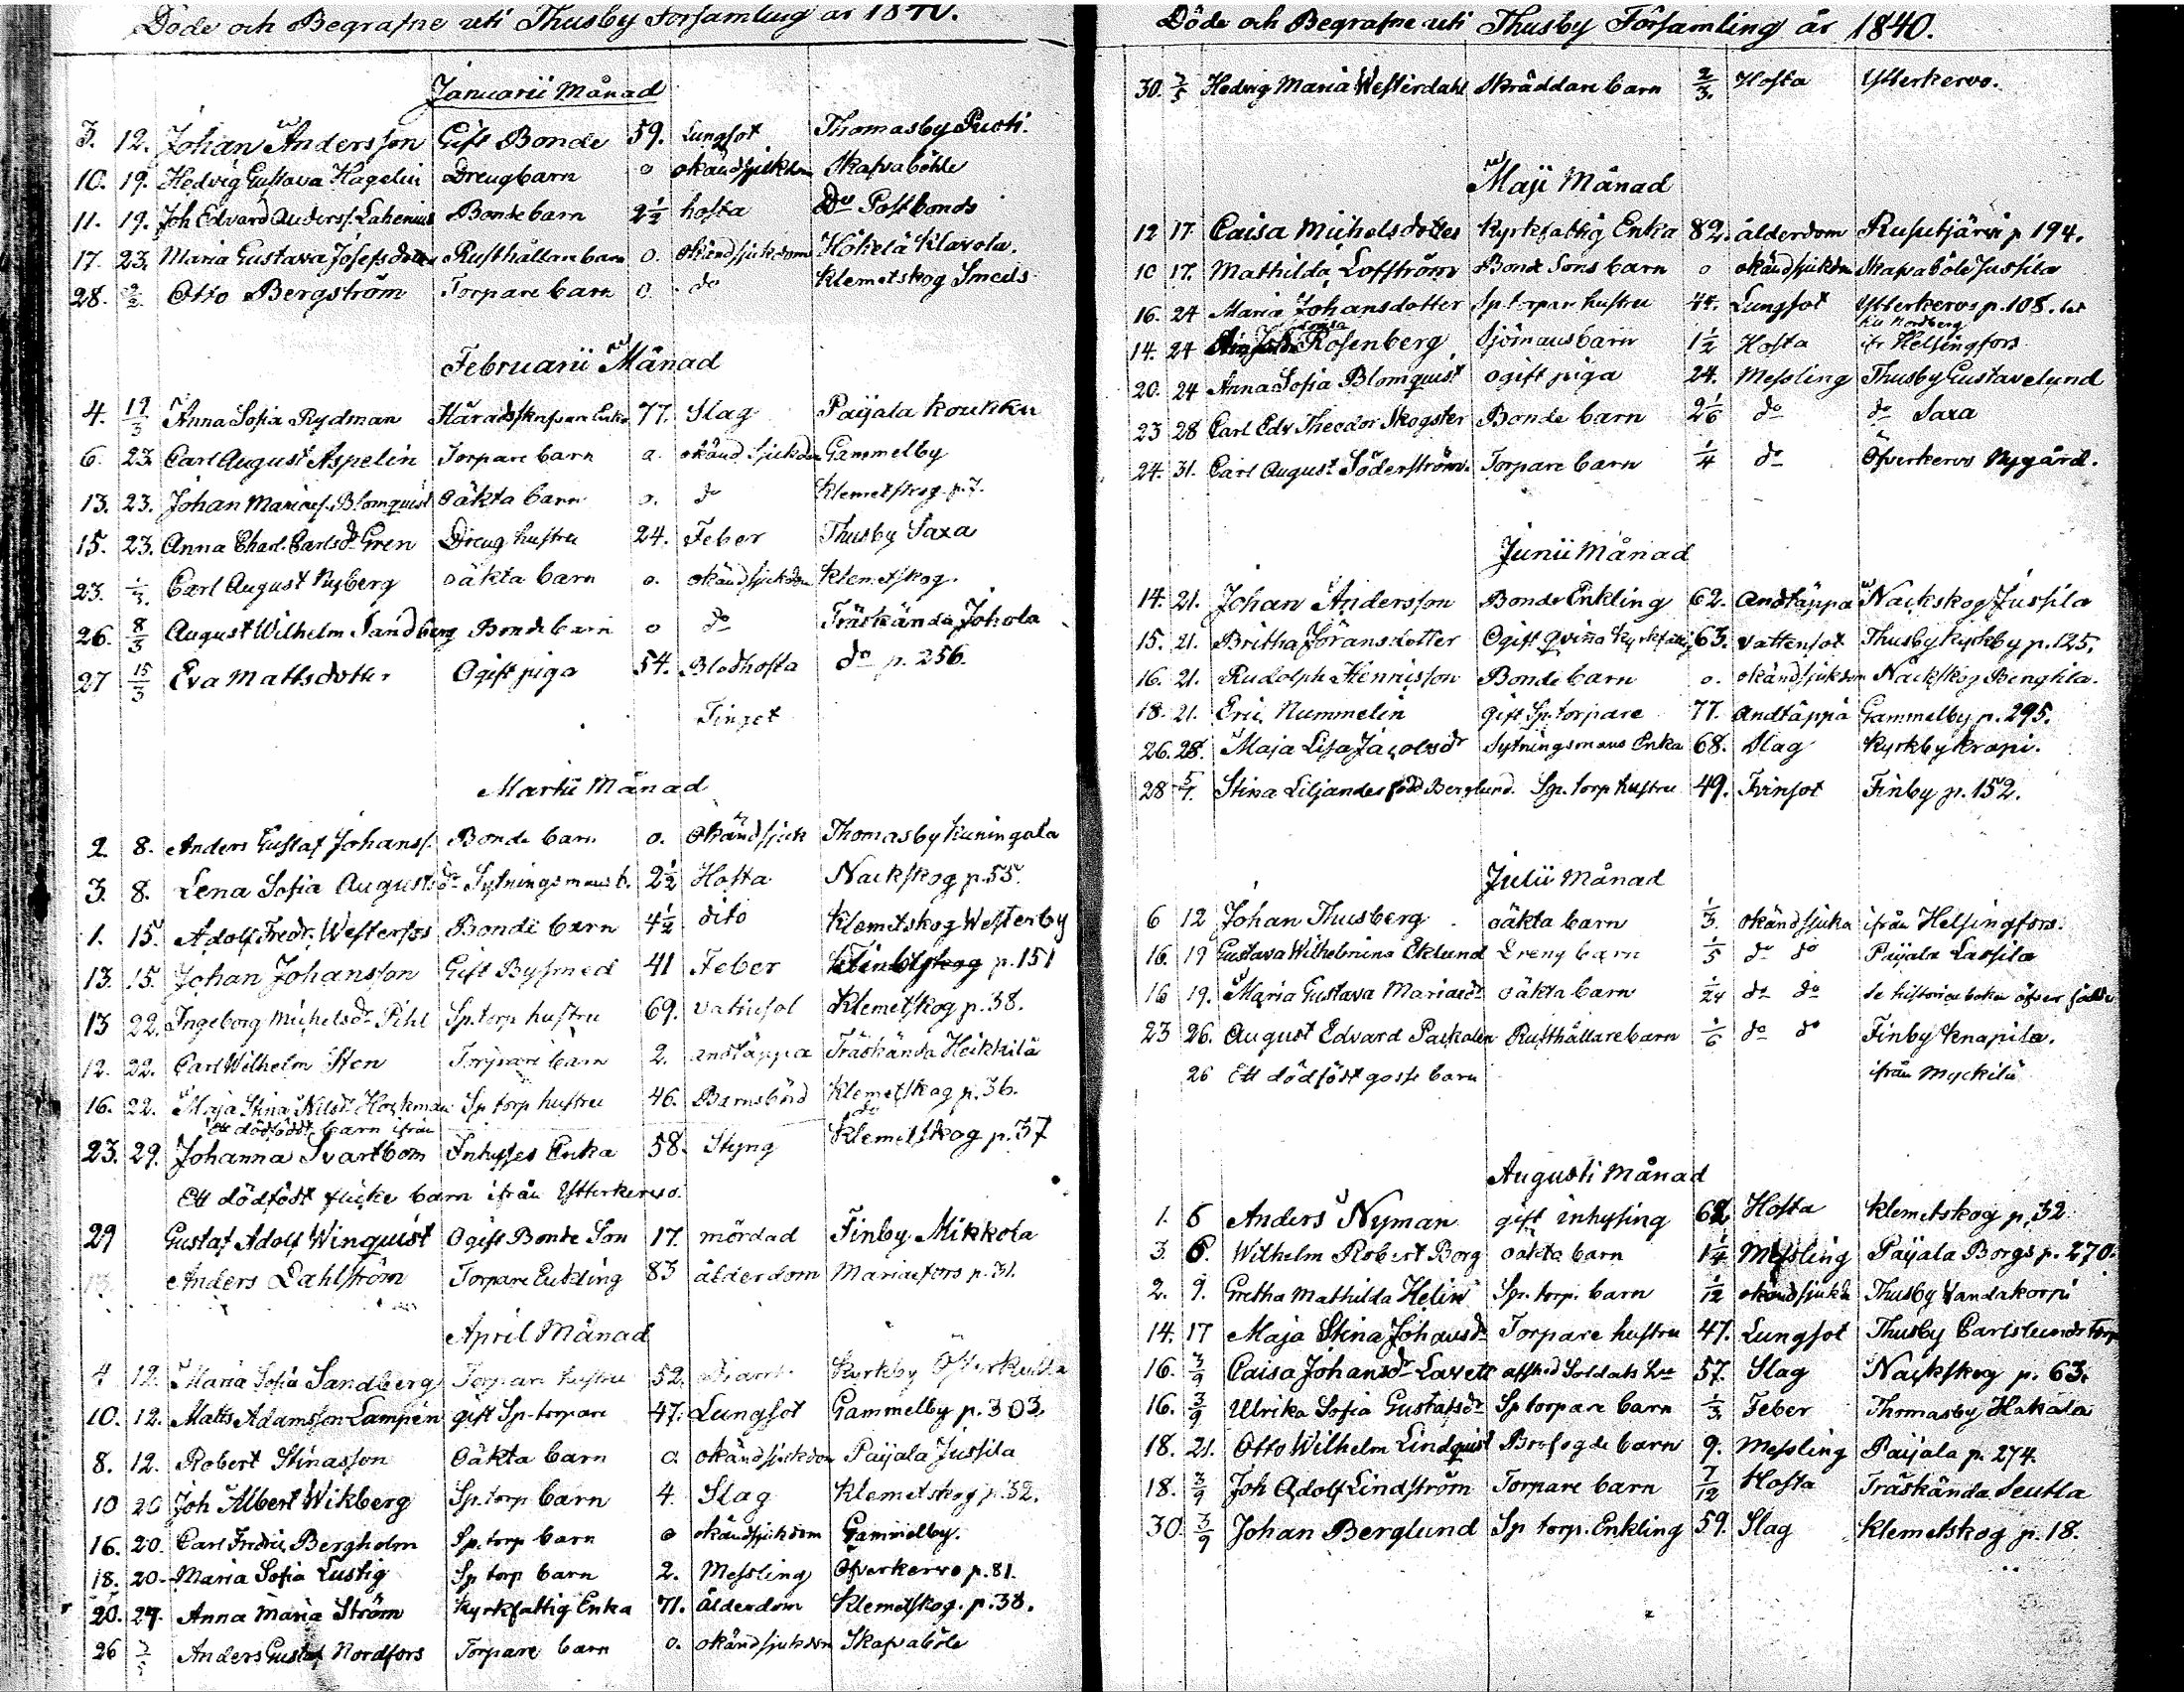 Döde och Begrafne uti Thusby Församling år 1840.
Januarii Månad
3. 12. Johan Andersson Gift Bonde 59. Lungsot Thomasby Puoti.
10. 19. Hedvig Gustava Hagelin Drengbarn o okändsjukdom Skafvaböhle
11. 19. Joh Edvard Anderss. Lahenius Bondebarn 2½ hosta Do Postbonds
17. 23. Maria Gustava Josefsdotter Rusthållarebarn o. okändsjukdom Hökelä Klavola.
28. 2/2 Otto Bergström Torpare barn o. do Klemetskog Smeds
Februarii Månad
4. 19/3 Anna Sofia Rydman Enka 77. Slag Paijala Koukku
6. 23. Carl August Aspelin Torpare barn o. okänd Sjukdom Gammelby
13. 23. Johan Marias. Blomquist oäkta barn o. do Klemetskog p. 7.
15. 23. Anna Charl. Carlsdr Gren Dreng hustru 24. Feber Thusby Saxa
23. 1/3. Carl August Nyberg oäkta barn o. okändsjukdom Klemetskog.
26. 8/3 August Wilhelm Sandberg Bonde barn o do Träskända Johola
27 15/3 Eva Mattsdotter Ogift piga 54. Blodhosta do p. 256.
Tinget
Martii Månad
2. 8. Anders Gustaf Johanss. Bonde barn o. Okändsjuk Thomasby Kuningala
3. 8. Lena Sofia Augustsdr Sytningsmans b. 2½ Hosta Nackskog p. 55.
1. 15. Adolf Fredr. Westerfors Bonde barn 4½ dito Klemetskog Westerby
13. 15. Johan Johansson Gift Bysmed 41 Feber p. 151
13 22. Ingeborg Michelsdr Pihl Sp. torp hustru 69. vattusot Klemetskog p. 38.
12. 22. Carl Wilhelm Sten Torpare barn 2. andtäppa Träskända Heikkilä
16. 22. Maja Stina Nilsdr Hockman Sp torp hustru 46. Barnsbörd Klemetskog p. 36.
Ett dödfödt barn ifrån do
23. 29. Johanna Svartbom Inhyses Enka 58. Styng Klemetskog p. 37
Ett dödfödt flicke barn ifrån Ytterkervo.
29 Gustaf Adolf Winquist Ogift Bonde Son 17. mördad Finby Mikkola
13. Anders Dahlström Torpare Enkling 83 ålderdom Mariaefors p. 31.
April Månad
4 12. Maria Sofia Sandberg Torpare hustru 52. Kyrkby
10. 12. Matts Adamsson Lampen gift Sp. torpare 47. Lungsot Gammelby p. 303.
8. 12. Robert Stinasson Oäkta barn o. okändsjukdom Paijala Jussila
10 20 Joh Albert Wikberg Sp. torp barn 4. Slag Klemetskog p. 32.
16. 20. Carl Fredric Bergholm Sp. torp barn o okändsjukdom Gammelby.
18. 20. Maria Sofia Lustig Sp torp barn 2. Messling Öfverkervo p. 81.
20. 24. Anna Maria Ström Kyrkfattig Enka 71. ålderdom Klemetskog. p. 38.
26 3/5 Anders Gustaf Nordfors Torpare barn o. okändsjukdom Skafvaböle
Döde och Begrafne uti Thusby Församling år 1840.
30. 3/5 Hedvig Maria Westerdahl Skräddare barn 2/3. Hosta Ytterkervo.
Maji Månad
12 17 Caisa Michelsdotter Kyrkfattig Enka 82. ålderdom Rusutjärvi p 194.
10 17. Mathilda Lofström Bonde Sons barn o okändsjukdom Skafvaböle Jussila
16. 24 Maria Johansdotter Sp. torpar hustru 44. Lungsot Ytterkervo p. 108.
14. 24 Rosenberg Sjömans barn 1½ Hosta ifr Helsingfors
20. 24 Anna Sofia Blomquist ogift piga 24. Messling Thusby Gustavelund
23 28 Carl Edv Theodor Skogster Bonde barn 2 1/6 do do Saxa
24. 31. Carl August Söderström. Torpare barn 1/4 do Öfverkervo Nygård.
Junii Månad
14. 21. Johan Andersson Bonde Enkling 62. Andtäppa Nackskog Jussila
15. 21. Britha Jöransdotter Ogift Qvinna Kyrkfattig 63. Vattensot Thusby Kyrkby p. 125.
16. 21. Rudolph Henricsson Bonde barn o. okändsjukdom Nackskog Bengtila.
18. 21. Eric Nummelin gift Sp. torpare 77. Andtäppa Gammelby p. 295.
26. 28. Maja Lisa Jacobsdr Sytningsmans Enka 68. Slag Kyrkby Krapi.
28 5/7. Stina Liljander född Berglund. Sp. torp hustru 49. Tvinsot Finby p. 152.
Julii Månad
6 12 Johan Thusberg oäkta barn 1/3. okändsjuka ifrån Helsingfors.
16. 19 Gustava Wilhelmina Eklund Dreng barn 1/5 do do Paijala Lassila
16 19. Maria Gustava Mariaedr oäkta barn 1/24 do do Se historieboken öfver
23 26. August Edvard Packalen Rusthållare barn 1/6 do do Finby Knapila.
26 Ett dödfödt gosse barn ifrån Myckilä
Augusti Månad
1. 6 Anders Nyman gift inhysing 62 Hosta Klemetskog p. 32
3. 6. Wilhelm Robert Borg oäkta barn 1¼ Messling Paijala Borgs p. 270.
2. 9. Gretha Mathilda Helin Sp. torp. barn 1/12 okändsjukd Thusby Vandakorpi
14. 17 Maja Stina Johansdr Torpare hustru 47. Lungsot Thusby Carlslunds torp
16. 3/9 Caisa Johansdr Lavett afsked Soldats 57. Slag Nackskog p. 63.
16. 3/9 Ulrika Sofia Gustafsdr Sp torpare barn 1/3. Feber Thomasby Hakala
18. 21. Otto Wilhelm Lindquist Brofogde barn 9. Messling Paijala p. 274.
18. 3/9 Joh Adolf Lindström Torpare barn 7/12 Hosta Träskända Seutla
30. 3/9 Johan Berglund Sp torp. Enkling 59. Slag Klemetskog p. 18.